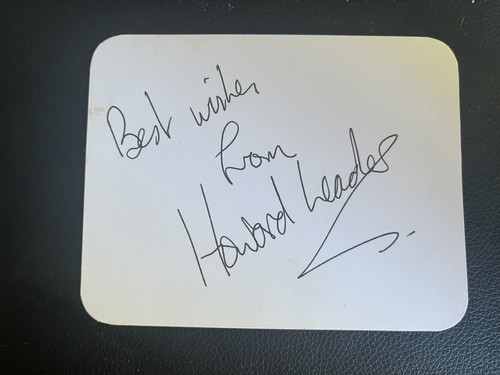 Best wishes
from
Howard Leader